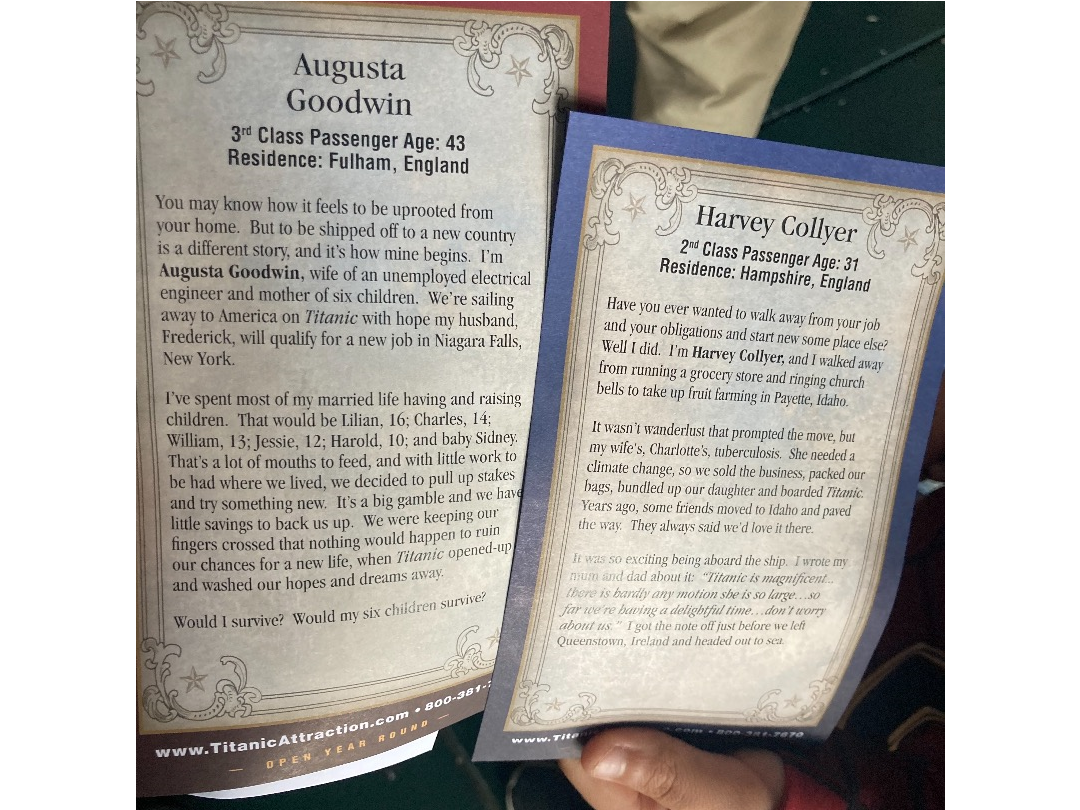 Augusta
Goodwin
3rd Class Passenger Age: 43
Residence: Fulham, England
You may know how it feels to be uprooted from
your home. But to be shipped off to a new country
is a different story, and it's how mine begins. I'm
Augusta Goodwin, wife of an unemployed electrical
engineer and mother of six children. We're sailing
away to America on Titanic with hope my husband,
Frederick, will qualify for a new job in Niagara Falls,
New York.
I've spent most of my married life having and raising
children. That would be Lilian, 16; Charles, 14;
William, 13; Jessie, 12; Harold, 10; and baby Sidney.
That's a lot of mouths to feed, and with little work to
be had where we lived, we decided to pull up stakes
and try something new. It's a big gamble and we have
little savings to back us up. We were keeping our
fingers crossed that nothing would happen to ruin
our chances for a new life, when Titanic opened-up
and washed our hopes and dreams away.
Would I survive? Would my six children survive?
www.TitanicAttraction.com • 800-381-
— OPEN YEAR ROUND —
Harvey Collyer
2nd Class Passenger Age: 31
Residence: Hampshire, England
Have you ever wanted to walk away from your job
and your obligations and start new some place else?
Well I did. I'm Harvey Collyer, and I walked away
from running a grocery store and ringing church
bells to take up fruit farming in Payette, Idaho.
It wasn't wanderlust that prompted the move, but
my wife's, Charlotte's, tuberculosis. She needed a
climate change, so we sold the business, packed our
bags, bundled up our daughter and boarded Titanic.
Years ago, some friends moved to Idaho and paved
the way. They always said we'd love it there.
It was so exciting being aboard the ship. I wrote my
mum and dad about it: "Titanic is magnificent...
there is hardly any motion she is so large...so
far we're having a delightful time...don't worry
about us." I got the note off just before we left
Queenstown, Ireland and headed out to sea.
www.Tita .com • 800-381-7670